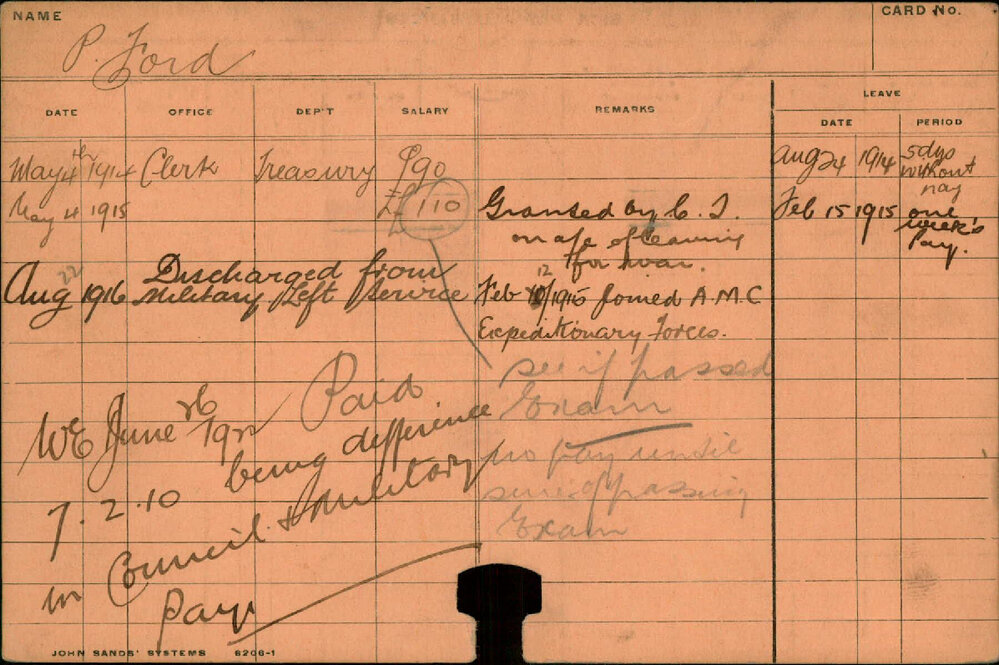 NAME
P. Ford
CARD No.
DATE OFFICE DEP'T SALARY REMARKS LEAVE
DATE PERIOD
May 4th 1914 Clerk Treasury £90
Aug 24 1914 5 dys
without
pay
May 4 1915 £110 Granted by C. T.
on a/c of leaving
for war.
Feb 15 1915 one
week's
Pay.
Aug 22 1916 Discharged from
Military Left Service
Feb 12/1915 Joined A.M.C
Expeditionary Forces.
see if passed
Exam
no pay until
passing
Exam
WE June 26 Paid
7.2.10 being difference
in Council & Military
Pay
JOHN SANDS' SYSTEMS 6206-1